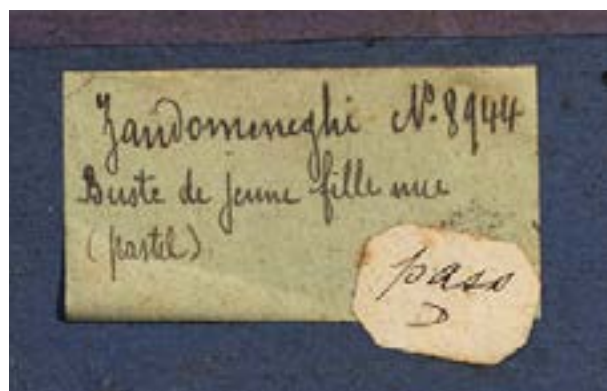 Zandomeneghi N° 8944
Buste de jeune fille nue
(pastel)
paso
D